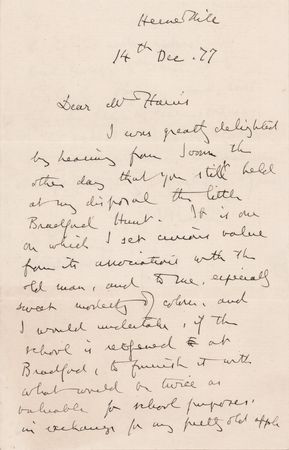 Herne Hill
14th Dec. 77
Dear Mr Harris
I was greatly delighted
by hearing from the
other day that you still held
at my disposal the little
Bradford Hunt. It is one
on which I set curious value
from its associations with the
old man, and to me, especially
sweet modesty of colour, and
I would undertake, if the
school is reopened at
Bradford, to furnish it with
what would be twice as
valuable for school purposes,
in exchange for my pretty old apple